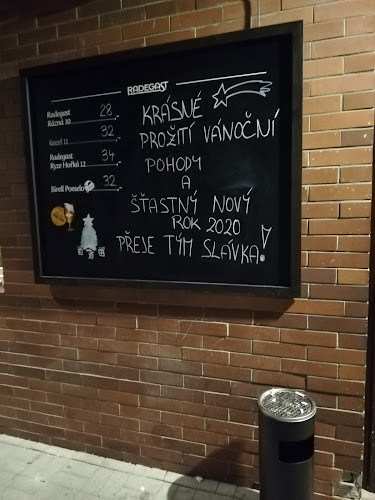 RADEGAST
Radegast
Rázná 10 28.-
Kozel 11 32.-
Radegast
Ryze Hořká 12 34.-
Birell Pomelo 32.-
KRÁSNÉ
PROŽITÍ VÁNOČNÍ
POHODY
A
ŠŤASTNÝ NOVÝ
ROK 2020
PŘEJE TÝM SLÁVKA!